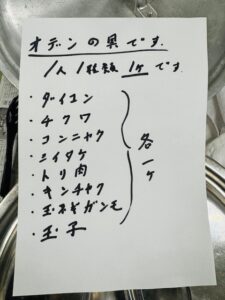 オデンの奥です.
1人1種類1ヶです.
・ダイコン
・チクワ
・コンニャク
・シイタケ
・トリ肉
・キンチャク
・玉ネギガンモ
・玉子
各一ヶ